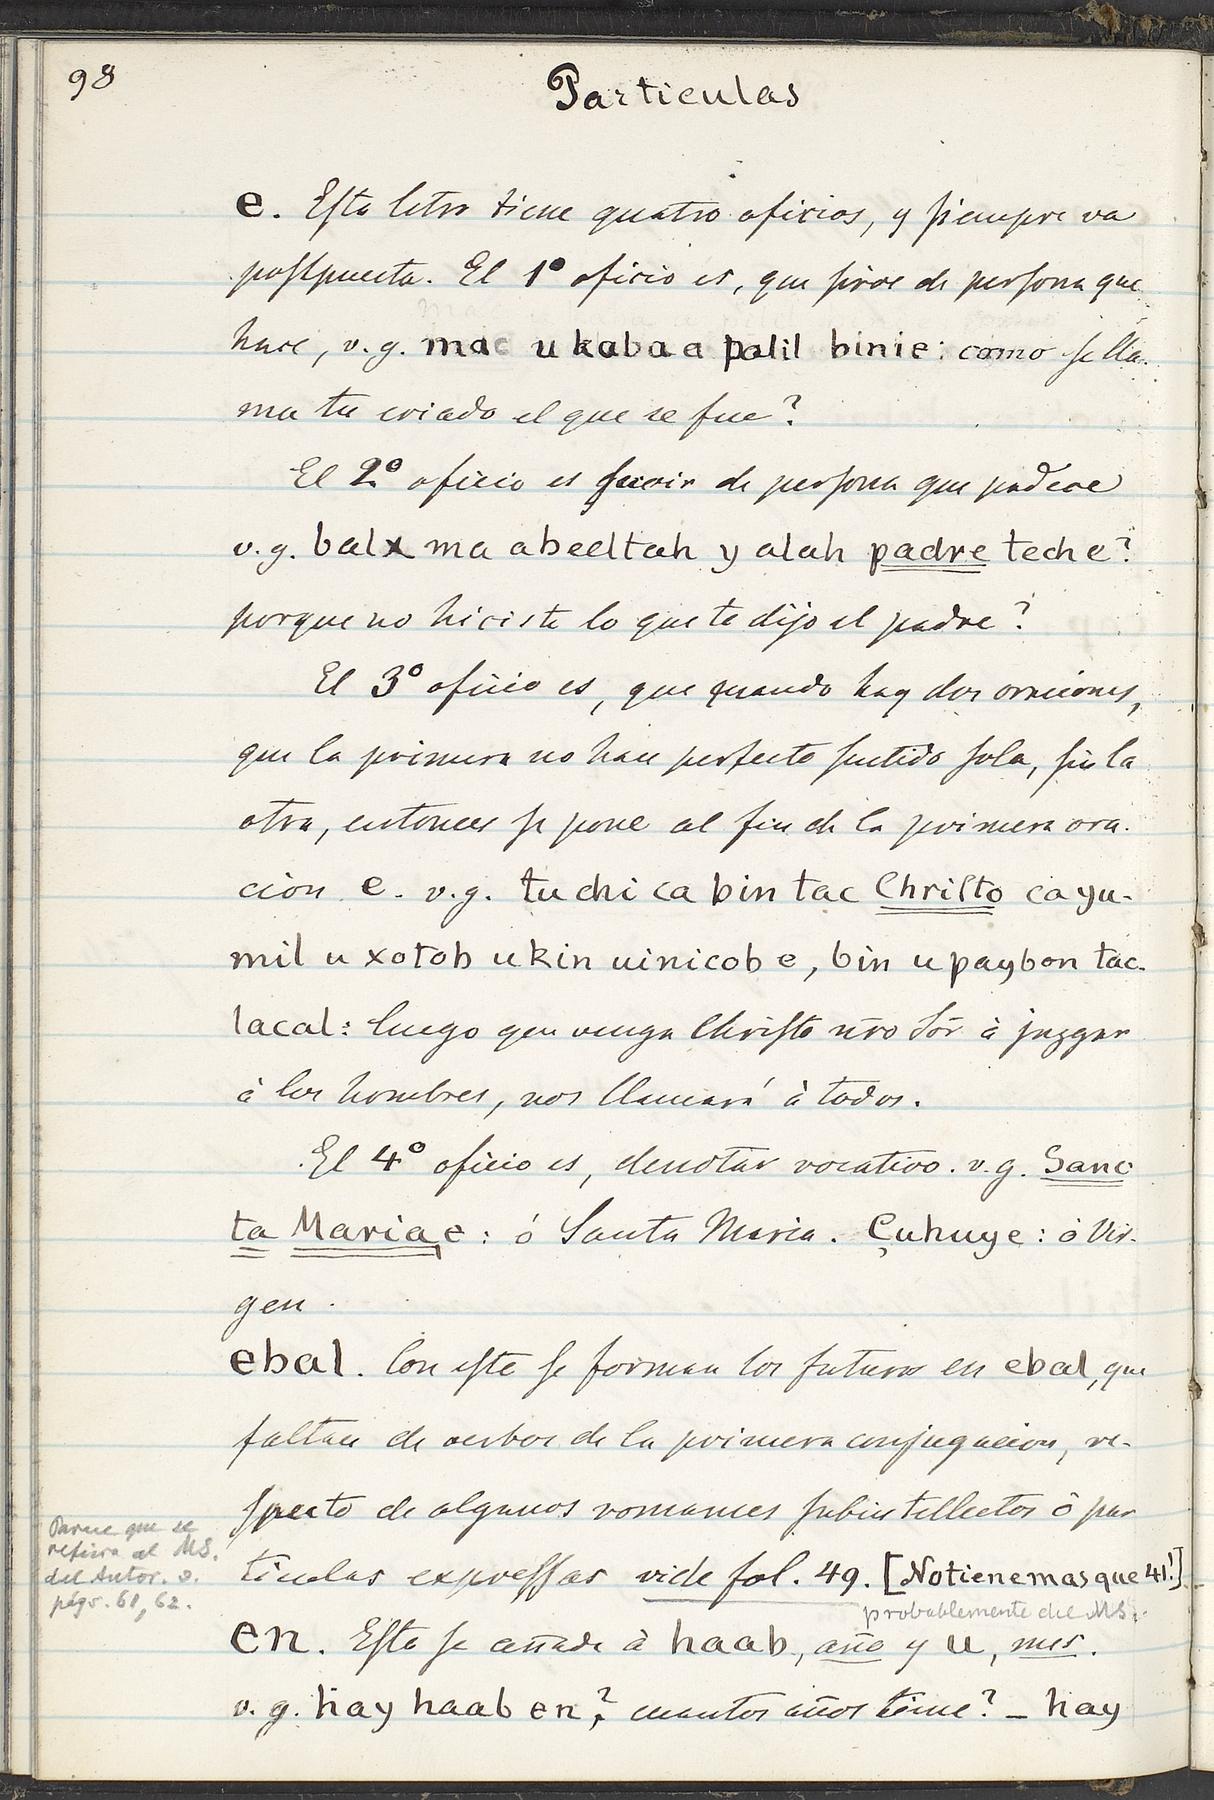 98
Particulas
e. Esta letra tiene quatro oficios, y siempre va
postpuesta. El 1º oficio es, que sirve de persona que
hace, v.g. mac u kaba a palil binie: como se lla-
ma tu criado el que se fue?
El 2º oficio es servir de persona que padece
v.g. balx ma abeeltah y alah padre teche?
porque no hiciste lo que te dijo el padre?
El 3º oficio es, que quando hay dos oraciones,
que la primera no hace perfecto sentido sola, sin la
otra, entonces se pone al fin de la primera ora-
cion e. v.g. tuchi ca bin tac Christo ca yu-
mil u xotob u kin uinicob e, bin u paybon tac-
lacal: luego que venga Christo ñro Sõr à juzgar
à los hombres, nos llamará à todos.
El 4º oficio es, denotar vocativo. v.g. Sanc
ta Mariae: ó Santa Maria. Çuhuye: ó Vir-
gen.
ebal. Con este se forman los futuros en ebal, que
faltan de verbos de la primera conjugacion, re-
specto de algunos romances subintellectos ô par
ticulas expressas vide fol. 49. [No tiene mas que 41!]
probablemente del MS.
Parece que se
refiera al MS.
del Autor. v.
págs. 61, 62.
en. Esta se añade à haab, año y u, mes.
v.g. hay haab en? cuantos años tiene? _ hay